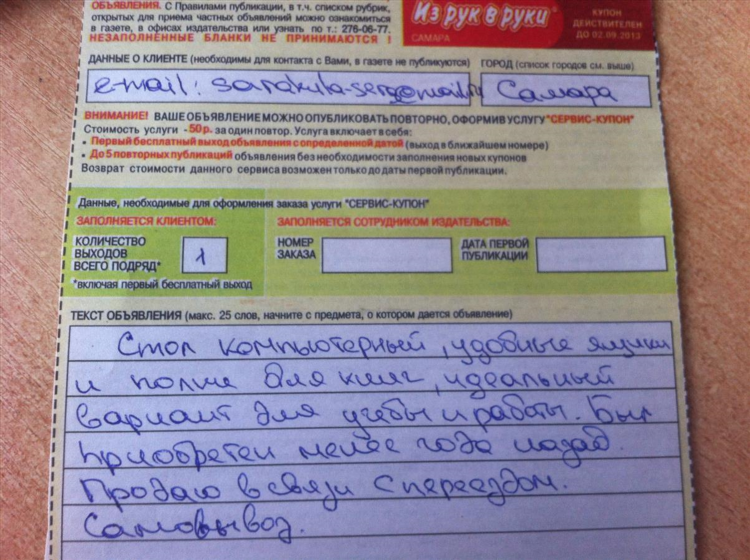 ОБЪЯВЛЕНИЯ. С Правилами публикации, в т.ч. списком рубрик,
открытых для приема частных объявлений можно ознакомиться
в газете, в офисах издательства или узнать по т.: 276-06-77.
НЕЗАПОЛНЕННЫЕ БЛАНКИ НЕ ПРИНИМАЮТСЯ !
Из рук в руки
САМАРА
КУПОН
ДЕЙСТВИТЕЛЕН
ДО 02.09.2013
ДАННЫЕ О КЛИЕНТЕ (необходимы для контакта с Вами, в газете не публикуются)
e-mail:
ГОРОД (список городов см. выше)
Самара
ВНИМАНИЕ! ВАШЕ ОБЪЯВЛЕНИЕ МОЖНО ОПУБЛИКОВАТЬ ПОВТОРНО, ОФОРМИВ УСЛУГУ "СЕРВИС-КУПОН"
Стоимость услуги - 50 р. за один повтор. Услуга включает в себя:
• Первый бесплатный выход объявления с определенной датой (выход в ближайшем номере)
• До 5 повторных публикаций объявления без необходимости заполнения новых купонов
Возврат стоимости данного сервиса возможен только до даты первой публикации.
Данные, необходимые для оформления заказа услуги "СЕРВИС-КУПОН"
ЗАПОЛНЯЕТСЯ КЛИЕНТОМ:
КОЛИЧЕСТВО
ВЫХОДОВ
ВСЕГО ПОДРЯД*
1
*включая первый бесплатный выход
ЗАПОЛНЯЕТСЯ СОТРУДНИКОМ ИЗДАТЕЛЬСТВА:
НОМЕР
ЗАКАЗА
ДАТА ПЕРВОЙ
ПУБЛИКАЦИИ
ТЕКСТ ОБЪЯВЛЕНИЯ (макс. 25 слов, начните с предмета, о котором дается объявление)
Стол компьютерный, удобные ящики
и полки для книг, идеальный
вариант для учебы и работы. Был
приобретен менее года назад.
Продаю в связи с переездом.
Самовывоз.